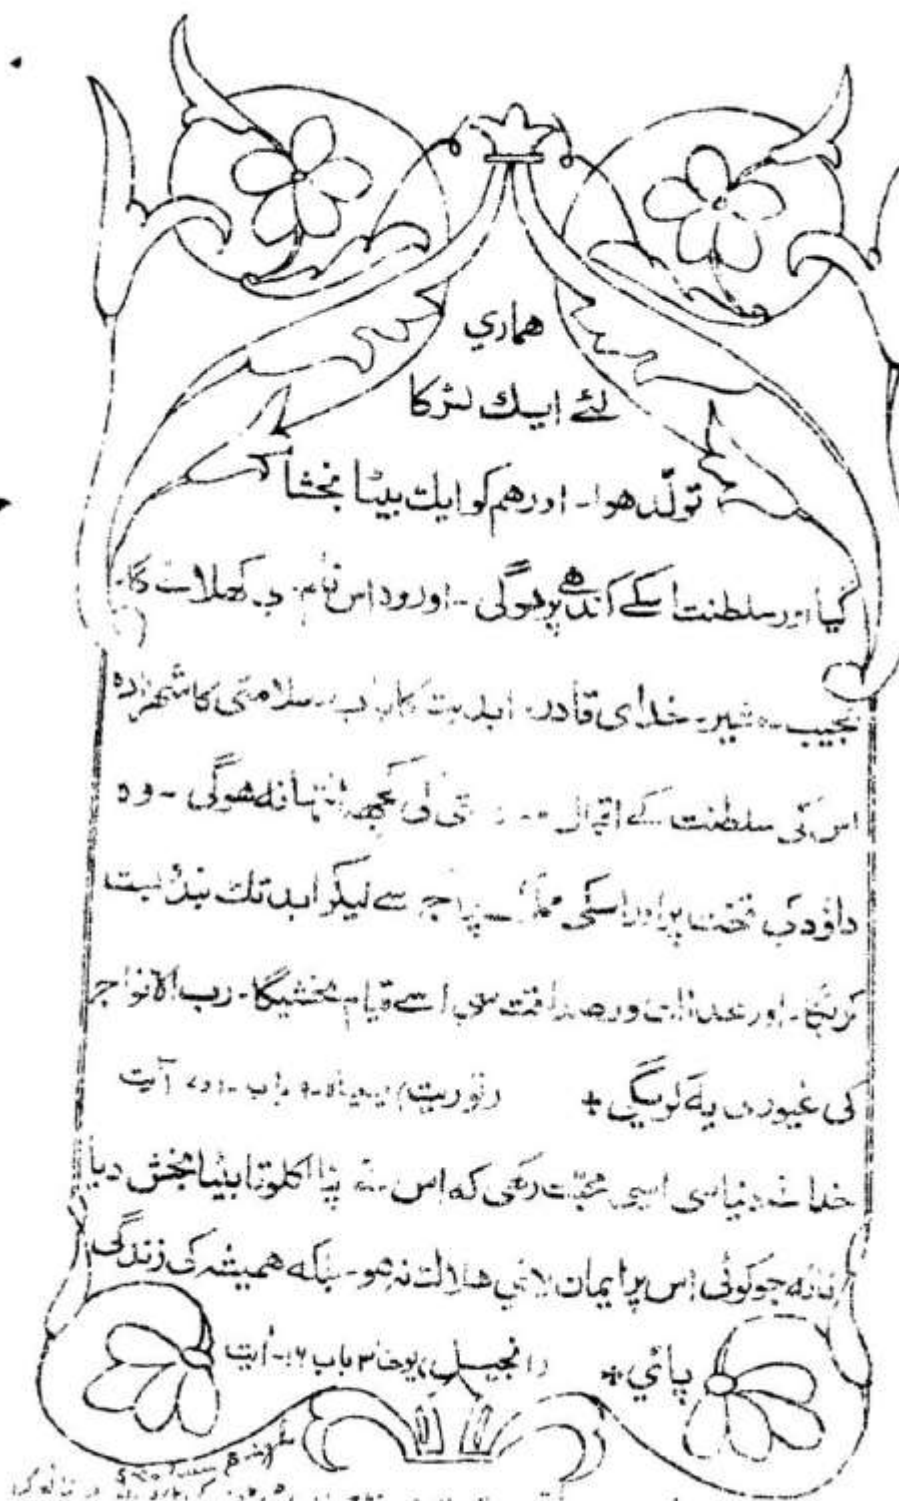 هماري
لئے ایک لڑکا
تولّد هوا - اور هم کو ایک بیٹا بخشا
گیا اور سلطنت اسکے کاندھے پر هوگی - اور وہ اس نام سے کہلائے گا -
عجیب - مشیر - خدای قادر - ابدیت کا باپ - سلامتی کا شہزادہ
اس کی سلطنت کے اقبال کی کچھ انتہا نہ هوگی - وہ
داؤد کے تخت پر اور اسکی مملکت پر آج سے لیکر ابد تک بندوبست
کریگا - اور عدالت اور صداقت سے اسے قیام بخشیگا - رب الافواج
کی غیوری یہ کریگی +
(توریت) یسعیاہ - ۹ باب - ۶ و ۷ آیت
خدا نے دنیا سی ایسی محبّت رکھی که اس نے اپنا اکلوتا بیٹا بخش دیا
تاکه جو کوئی اس پر ایمان لائي هلاک نہ هو - بلکه همیشہ کی زندگی
پائي +
(انجیل) یوحنا ۳ باب ۱۶ - آیت